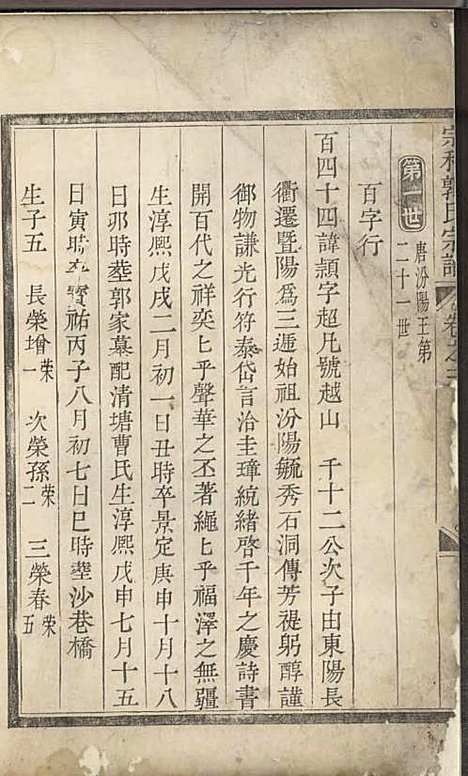 宗和郭氏宗譜 卷之三
第一世 唐汾陽王第二十一世
百字行
百四十四諱頴字超凡號越山 千十二公次子由東陽長
衢遷暨陽爲三遞始祖汾陽毓秀石洞傳芳禔躬醇謹
御物謙光行符泰岱言洽圭璋統緒啓千年之慶詩書
開百代之祥奕匕乎聲華之丕著繩匕乎福澤之無疆
生淳熙戊戌二月初一日丑時卒景定庚申十月十八
日夘時塟郭家墓配清塘曹氏生淳熙戊申七月十五
日寅時卒寳祐丙子八月初七日巳時塟沙巷橋
生子五 長榮增榮一 次榮孫榮二 三榮春榮五